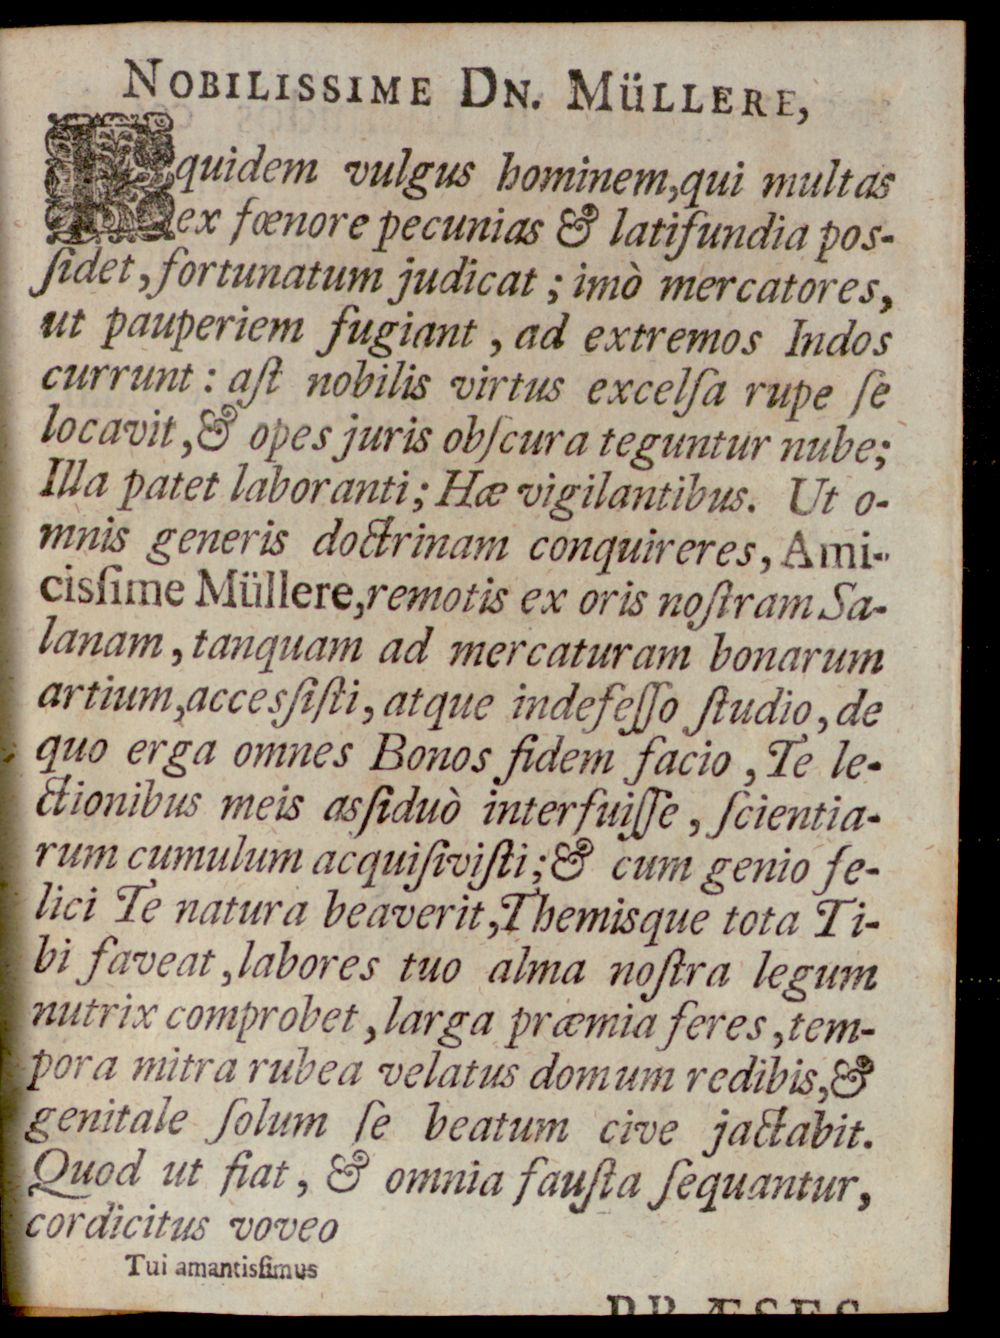 NOBILISSIME DN. MüLLERE,
Equidem vulgus hominem, qui multas
ex fœnore pecunias & latifundia pos-
ſidet, fortunatum judicat; imò mercatores,
ut pauperiem fugiant, ad extremos Indos
currunt: aſt nobilis virtus excelſa rupe ſe
locavit, & opes juris obſcura teguntur nube;
Illa patet laboranti; Hæ vigilantibus. Ut o-
mnis generis doctrinam conquireres, Ami-
cisſime Müllere, remotis ex oris noſtram Sa-
lanam, tanquam ad mercaturam bonarum
artium, accesſiſti, atque indefeſſo ſtudio, de
quo erga omnes Bonos fidem facio, Te le-
ctionibus meis asſiduò interfuiſſe, ſcientia-
rum cumulum acquiſiviſti; & cum genio fe-
lici Te natura beaverit, Themisque tota Ti-
bi faveat, labores tuo alma noſtra legum
nutrix comprobet, larga præmia feres, tem-
pora mitra rubea velatus domum redibis, &
genitale ſolum ſe beatum cive jactabit.
Quod ut fiat, & omnia fauſta ſequantur,
cordicitus voveo
Tui amantisſimus
PRÆSES